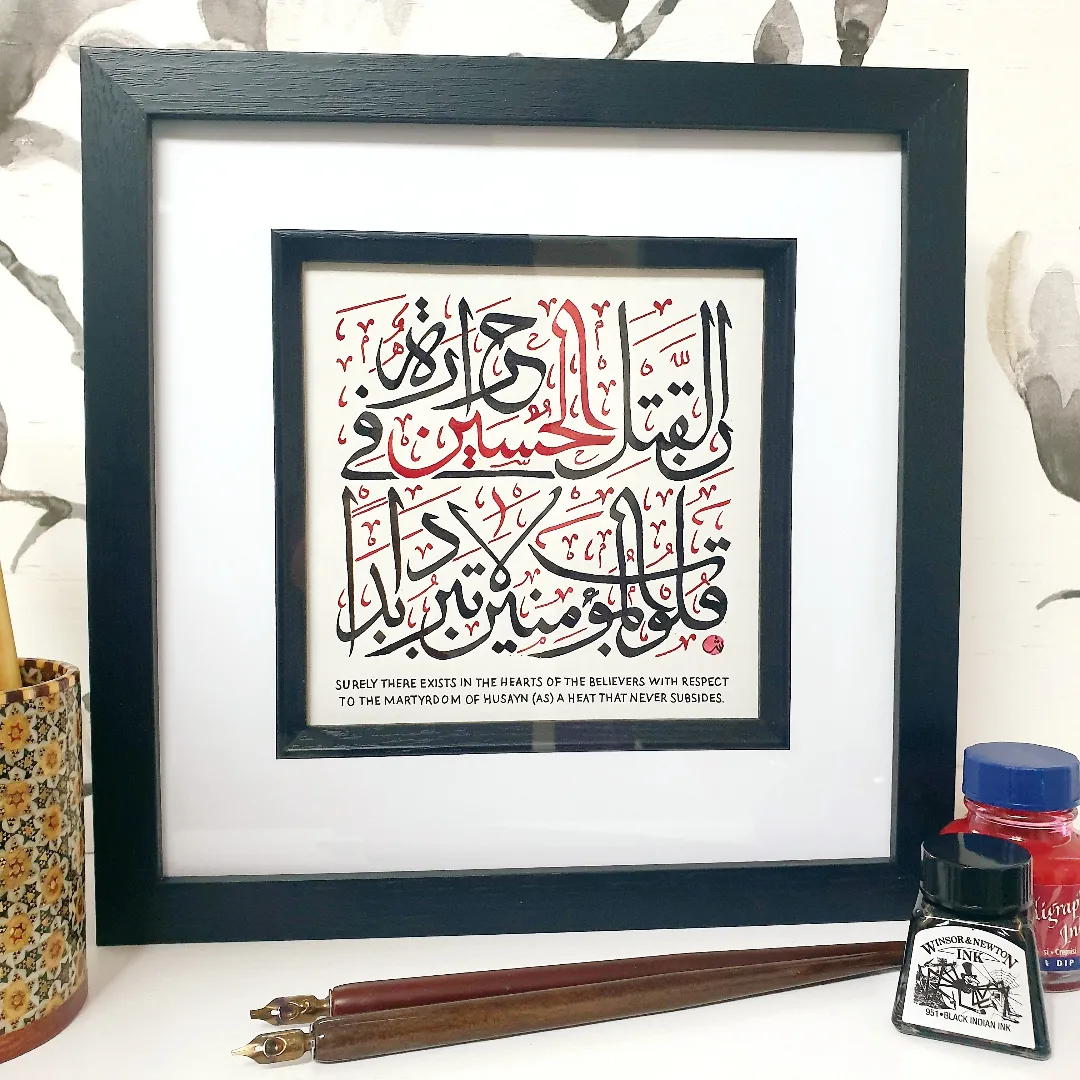 ان لقتل الحسين حرارة في
قلوب المؤمنين لا تبرد ابدا
SURELY THERE EXISTS IN THE HEARTS OF THE BELIEVERS WITH RESPECT
TO THE MARTYRDOM OF HUSAYN (AS) A HEAT THAT NEVER SUBSIDES.
WINSOR & NEWTON
INK
951•BLACK INDIAN INK
DIP